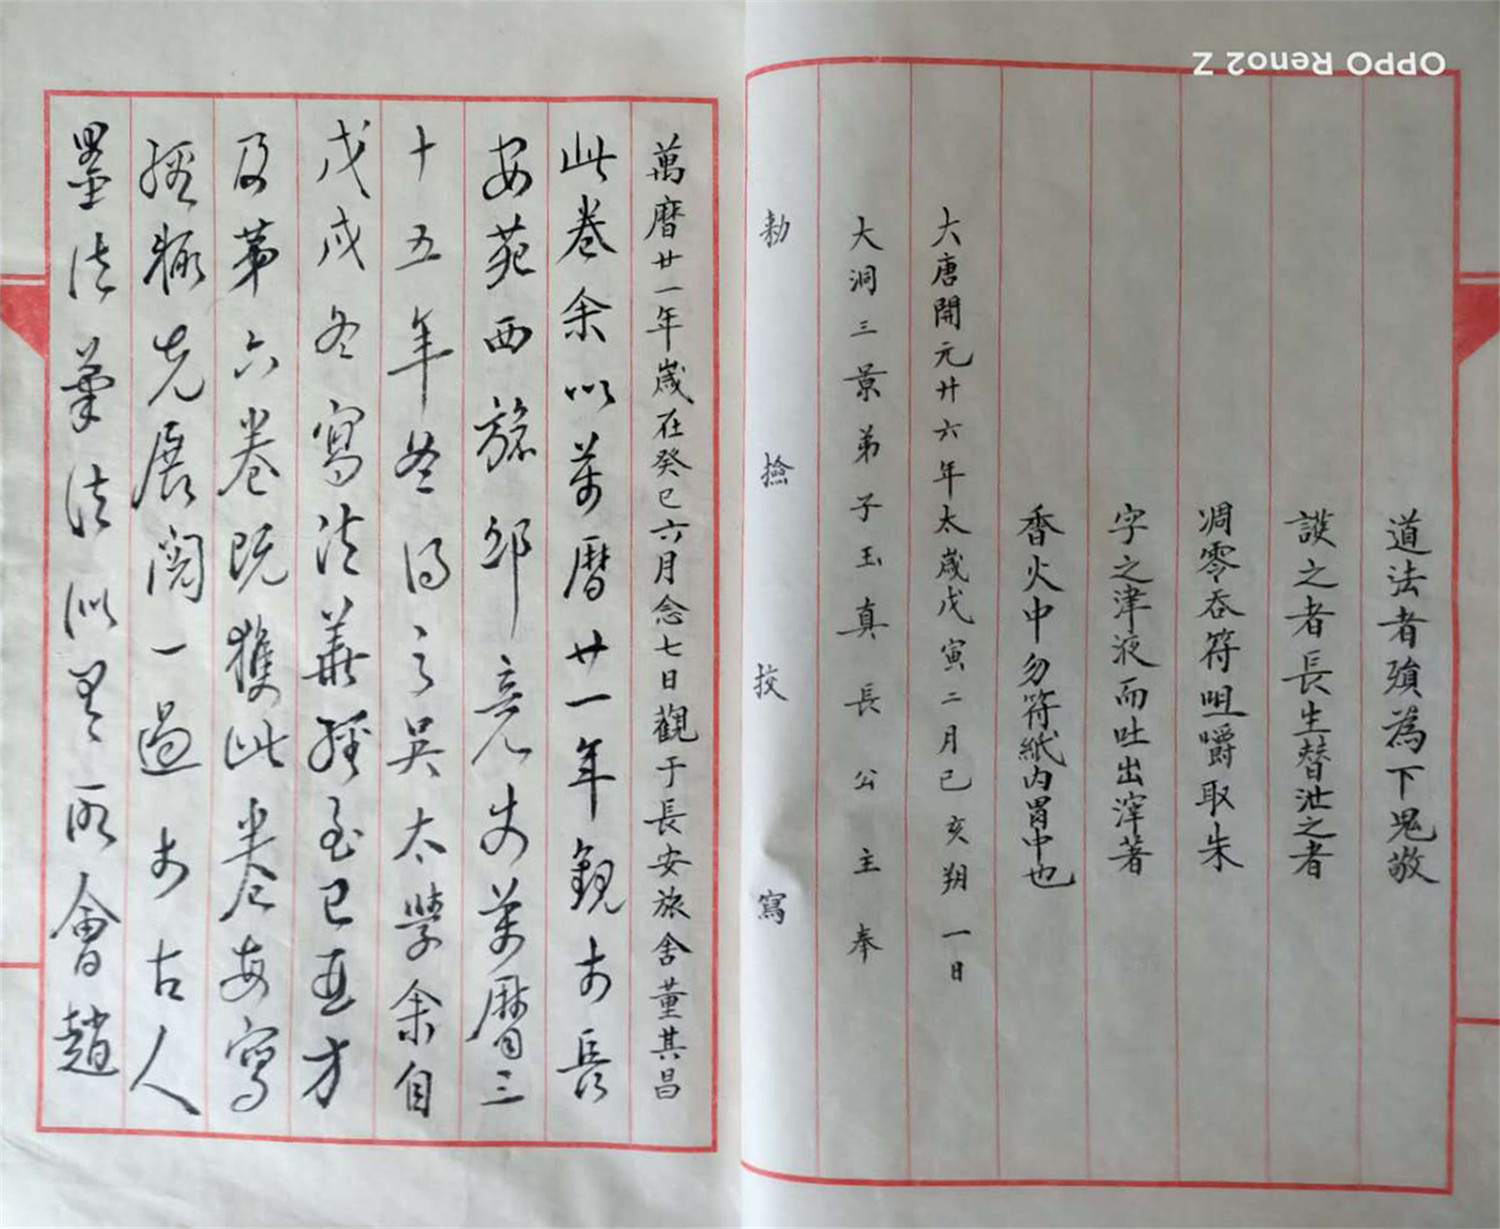 道法者殞為下鬼敬
護之者長生替泄之者
凋零吞符咀嚼取朱
字之津液而吐出滓著
香火中勿符紙內胃中也
大唐開元廿六年太歲戊寅二月己亥朔一日
大洞三景弟子玉真長公主奉
勑撿挍寫
萬曆廿一年歲在癸巳六月念七日觀于長安旅舍董其昌
此卷余以萬曆廿一年觀於長
安苑西旅邸竟失萬曆三
十五年冬得之吳太學余自
戊戌冬寫法華經至己亥方
及第六卷既獲此卷每寫
經輒先展閱一過於古人
墨法筆法似有所會趙
OPPO Reno2 Z